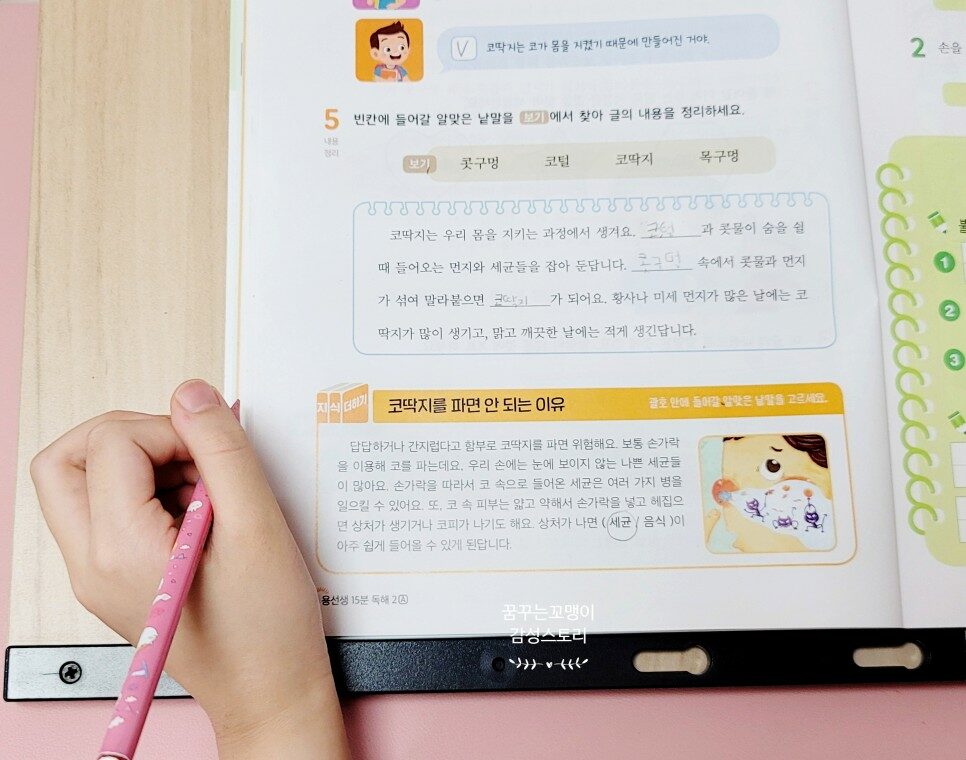 V 코딱지는 코가 몸을 지켰기 때문에 만들어진 거야.
5 빈칸에 들어갈 알맞은 낱말을 보기 에서 찾아 글의 내용을 정리하세요.
내용
정리
보기 콧구멍 코털 코딱지 목구멍
코딱지는 우리 몸을 지키는 과정에서 생겨요. 코털 과 콧물이 숨을 쉴
때 들어오는 먼지와 세균들을 잡아 둔답니다. 콧구멍 속에서 콧물과 먼지
가 섞여 말라붙으면 코딱지 가 되어요. 황사나 미세 먼지가 많은 날에는 코
딱지가 많이 생기고, 맑고 깨끗한 날에는 적게 생긴답니다.
지식 더하기 코딱지를 파면 안 되는 이유 괄호 안에 들어갈 알맞은 낱말을 고르세요.
답답하거나 간지럽다고 함부로 코딱지를 파면 위험해요. 보통 손가락
을 이용해 코를 파는데요. 우리 손에는 눈에 보이지 않는 나쁜 세균들
이 많아요. 손가락을 따라서 코 속으로 들어온 세균은 여러 가지 병을
일으킬 수 있어요. 또, 코 속 피부는 얇고 약해서 손가락을 넣고 헤집으
면 상처가 생기거나 코피가 나기도 해요. 상처가 나면 ( 세균 / 음식 )이
아주 쉽게 들어올 수 있게 된답니다.
용선생 15분 독해 2A
꿈꾸는꼬맹이
감성스토리
2 손을
1
2
3